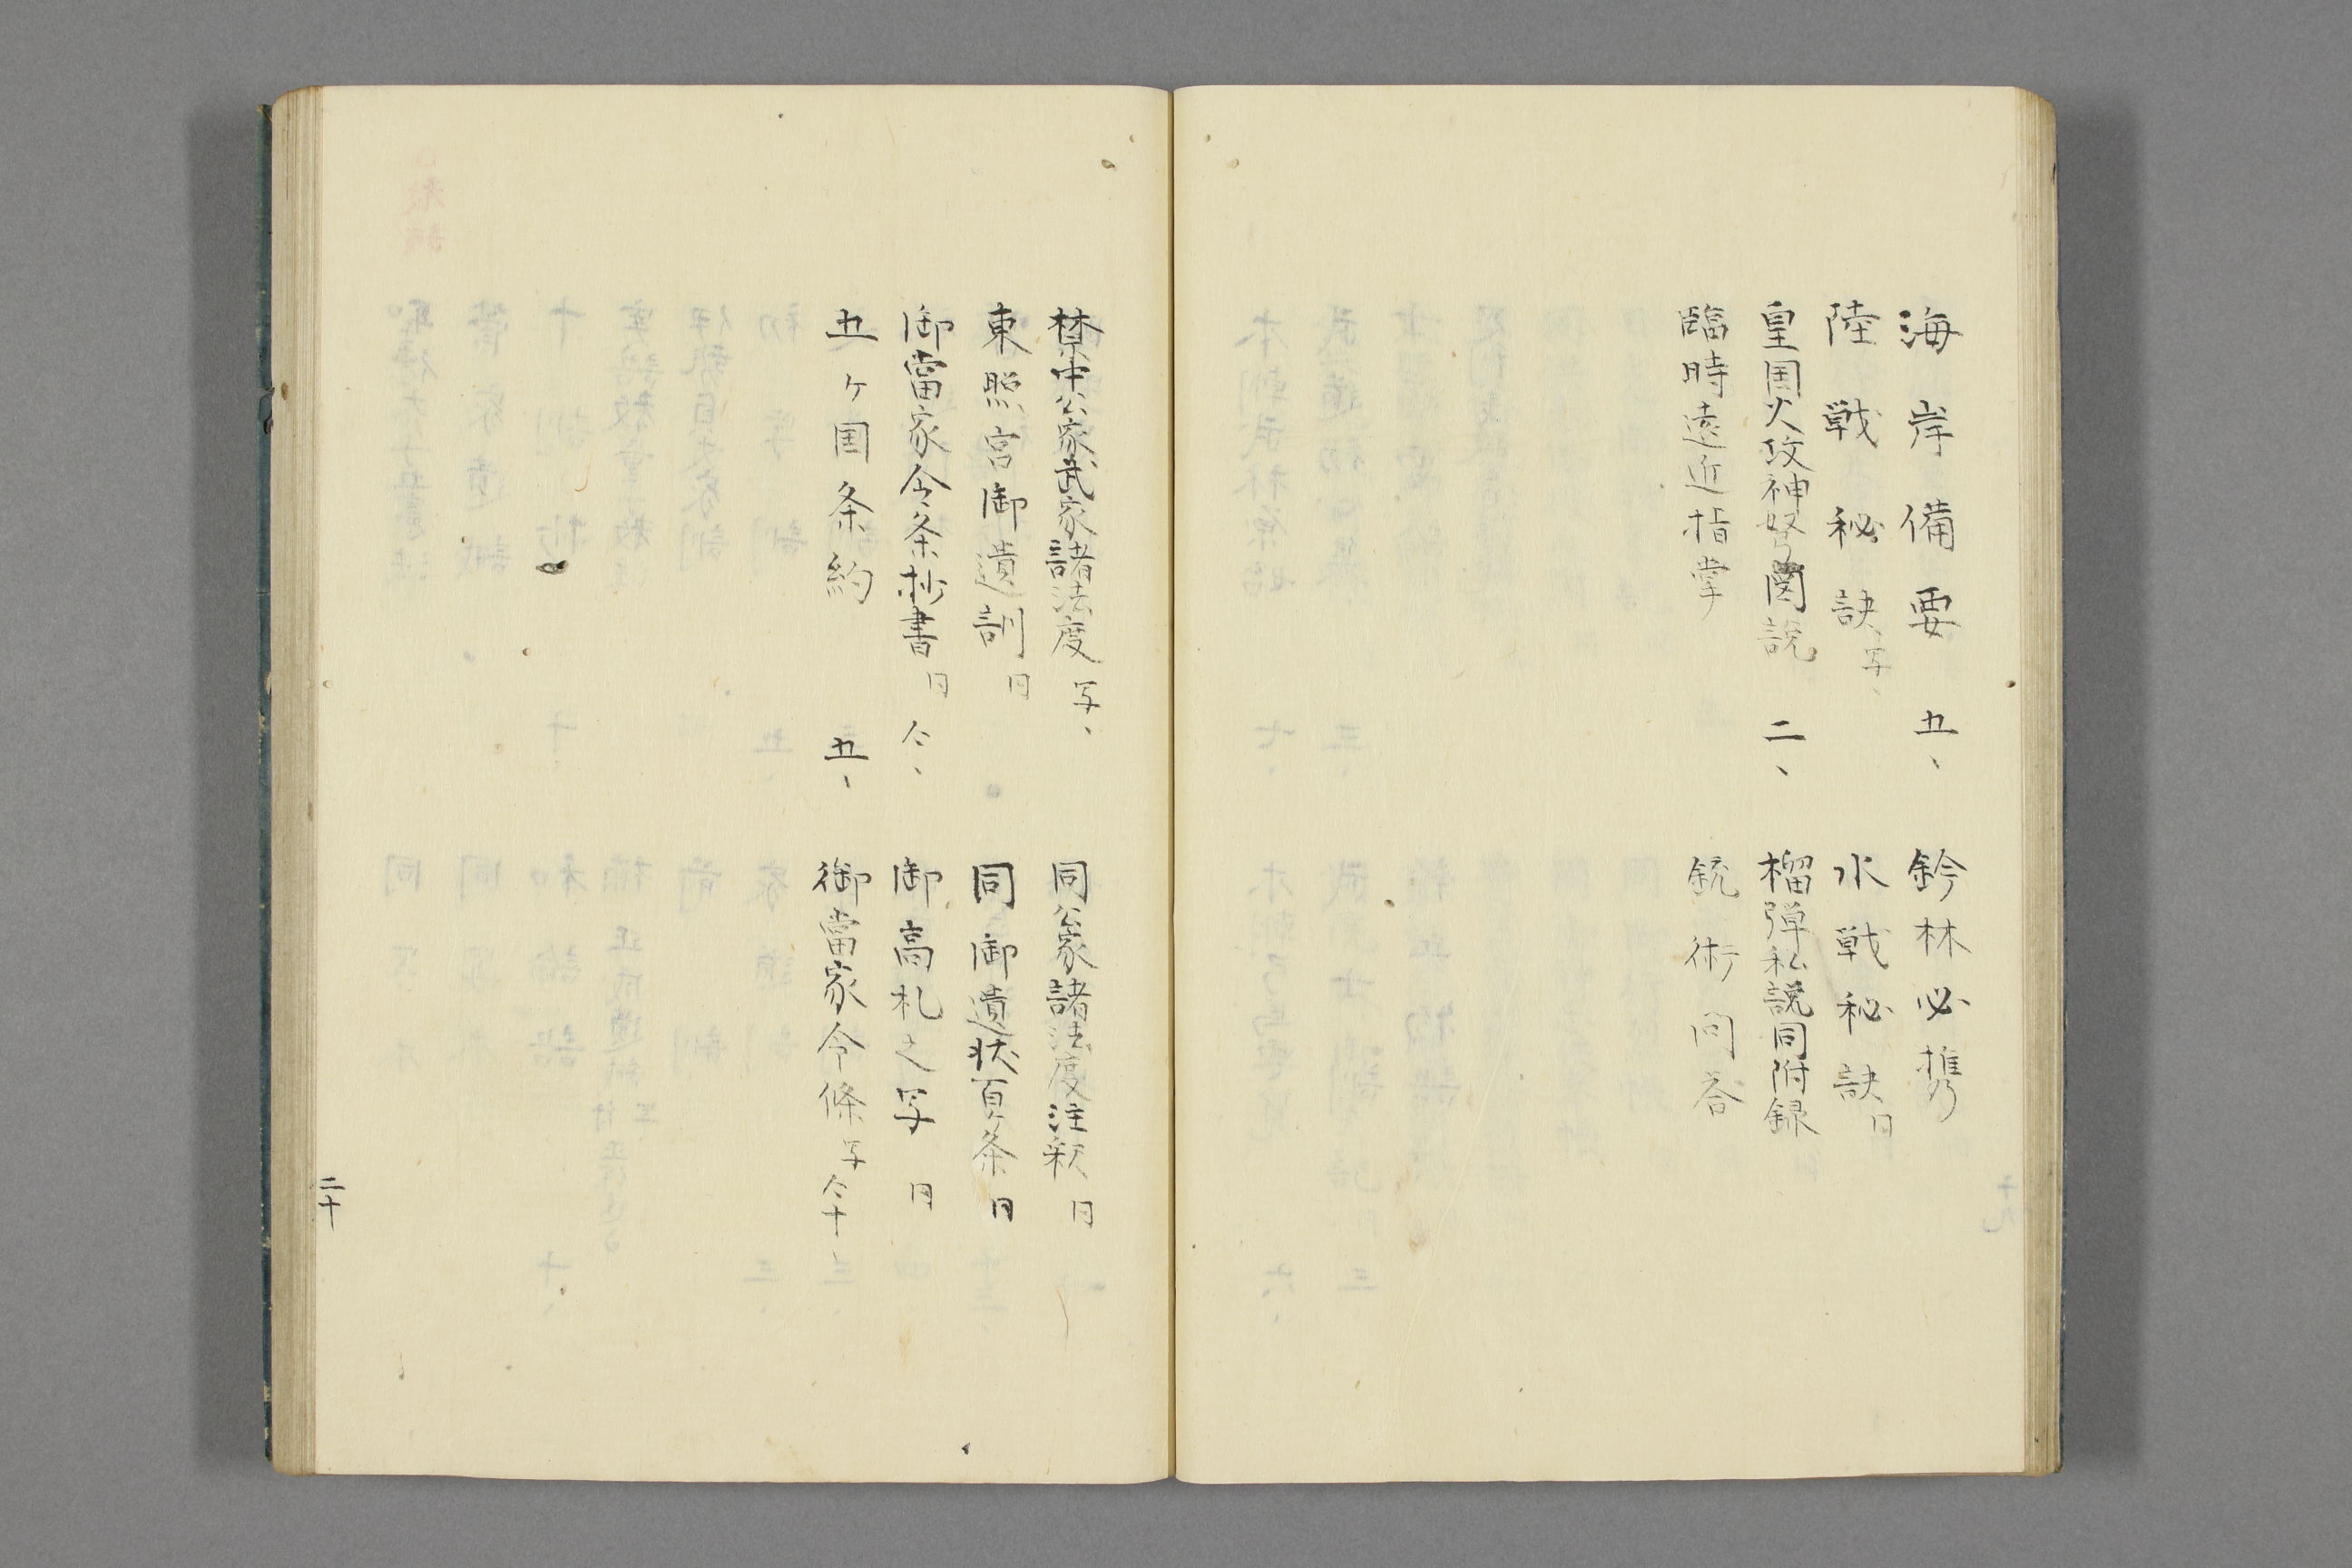 海岸備要 五、
鈐林必携
陸戦秘訣、写、
水戦秘訣 同
皇国火攻神弩図説 二、
榴弾私説同附録
臨時遠近指掌
銃術問答
禁中公家武家諸法度 写、
同公家諸法度注釈 同
東照宮御遺訓 同
同御遺状百ヶ条 同
御當家令条抄書 同 仝、
御高札之写 同
五ヶ国条約 五、
御當家令條 写 仝十
二十